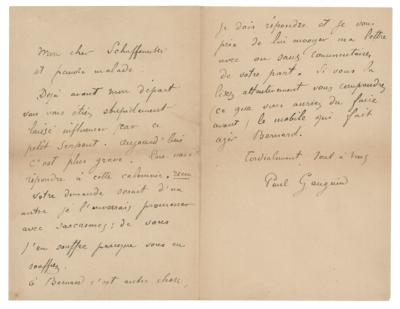 Mon cher Schuffenecker
et pauvre malade
Déjà avant mon départ
vous vous étiez stupidement
laissé influencer par ce
petit Serpent. aujourd'hui
c'est plus grave. Que vous
répondre à cette calomnie, rien
votre demande serait d'un
autre je l'enverrais promener
avec sarcasmes; de vous
j'en souffre parceque vous en
souffrez.
à Bernard c'est autre chose,
je dois répondre et je vous
prie de lui envoyer ma lettre
avec ou sans commentaires
de votre part. Si vous la
lisez attentivement vous comprendrez
ce que vous auriez dû faire
avant; le mobile qui fait
agir Bernard.
Cordialement tout à vous
Paul Gauguin